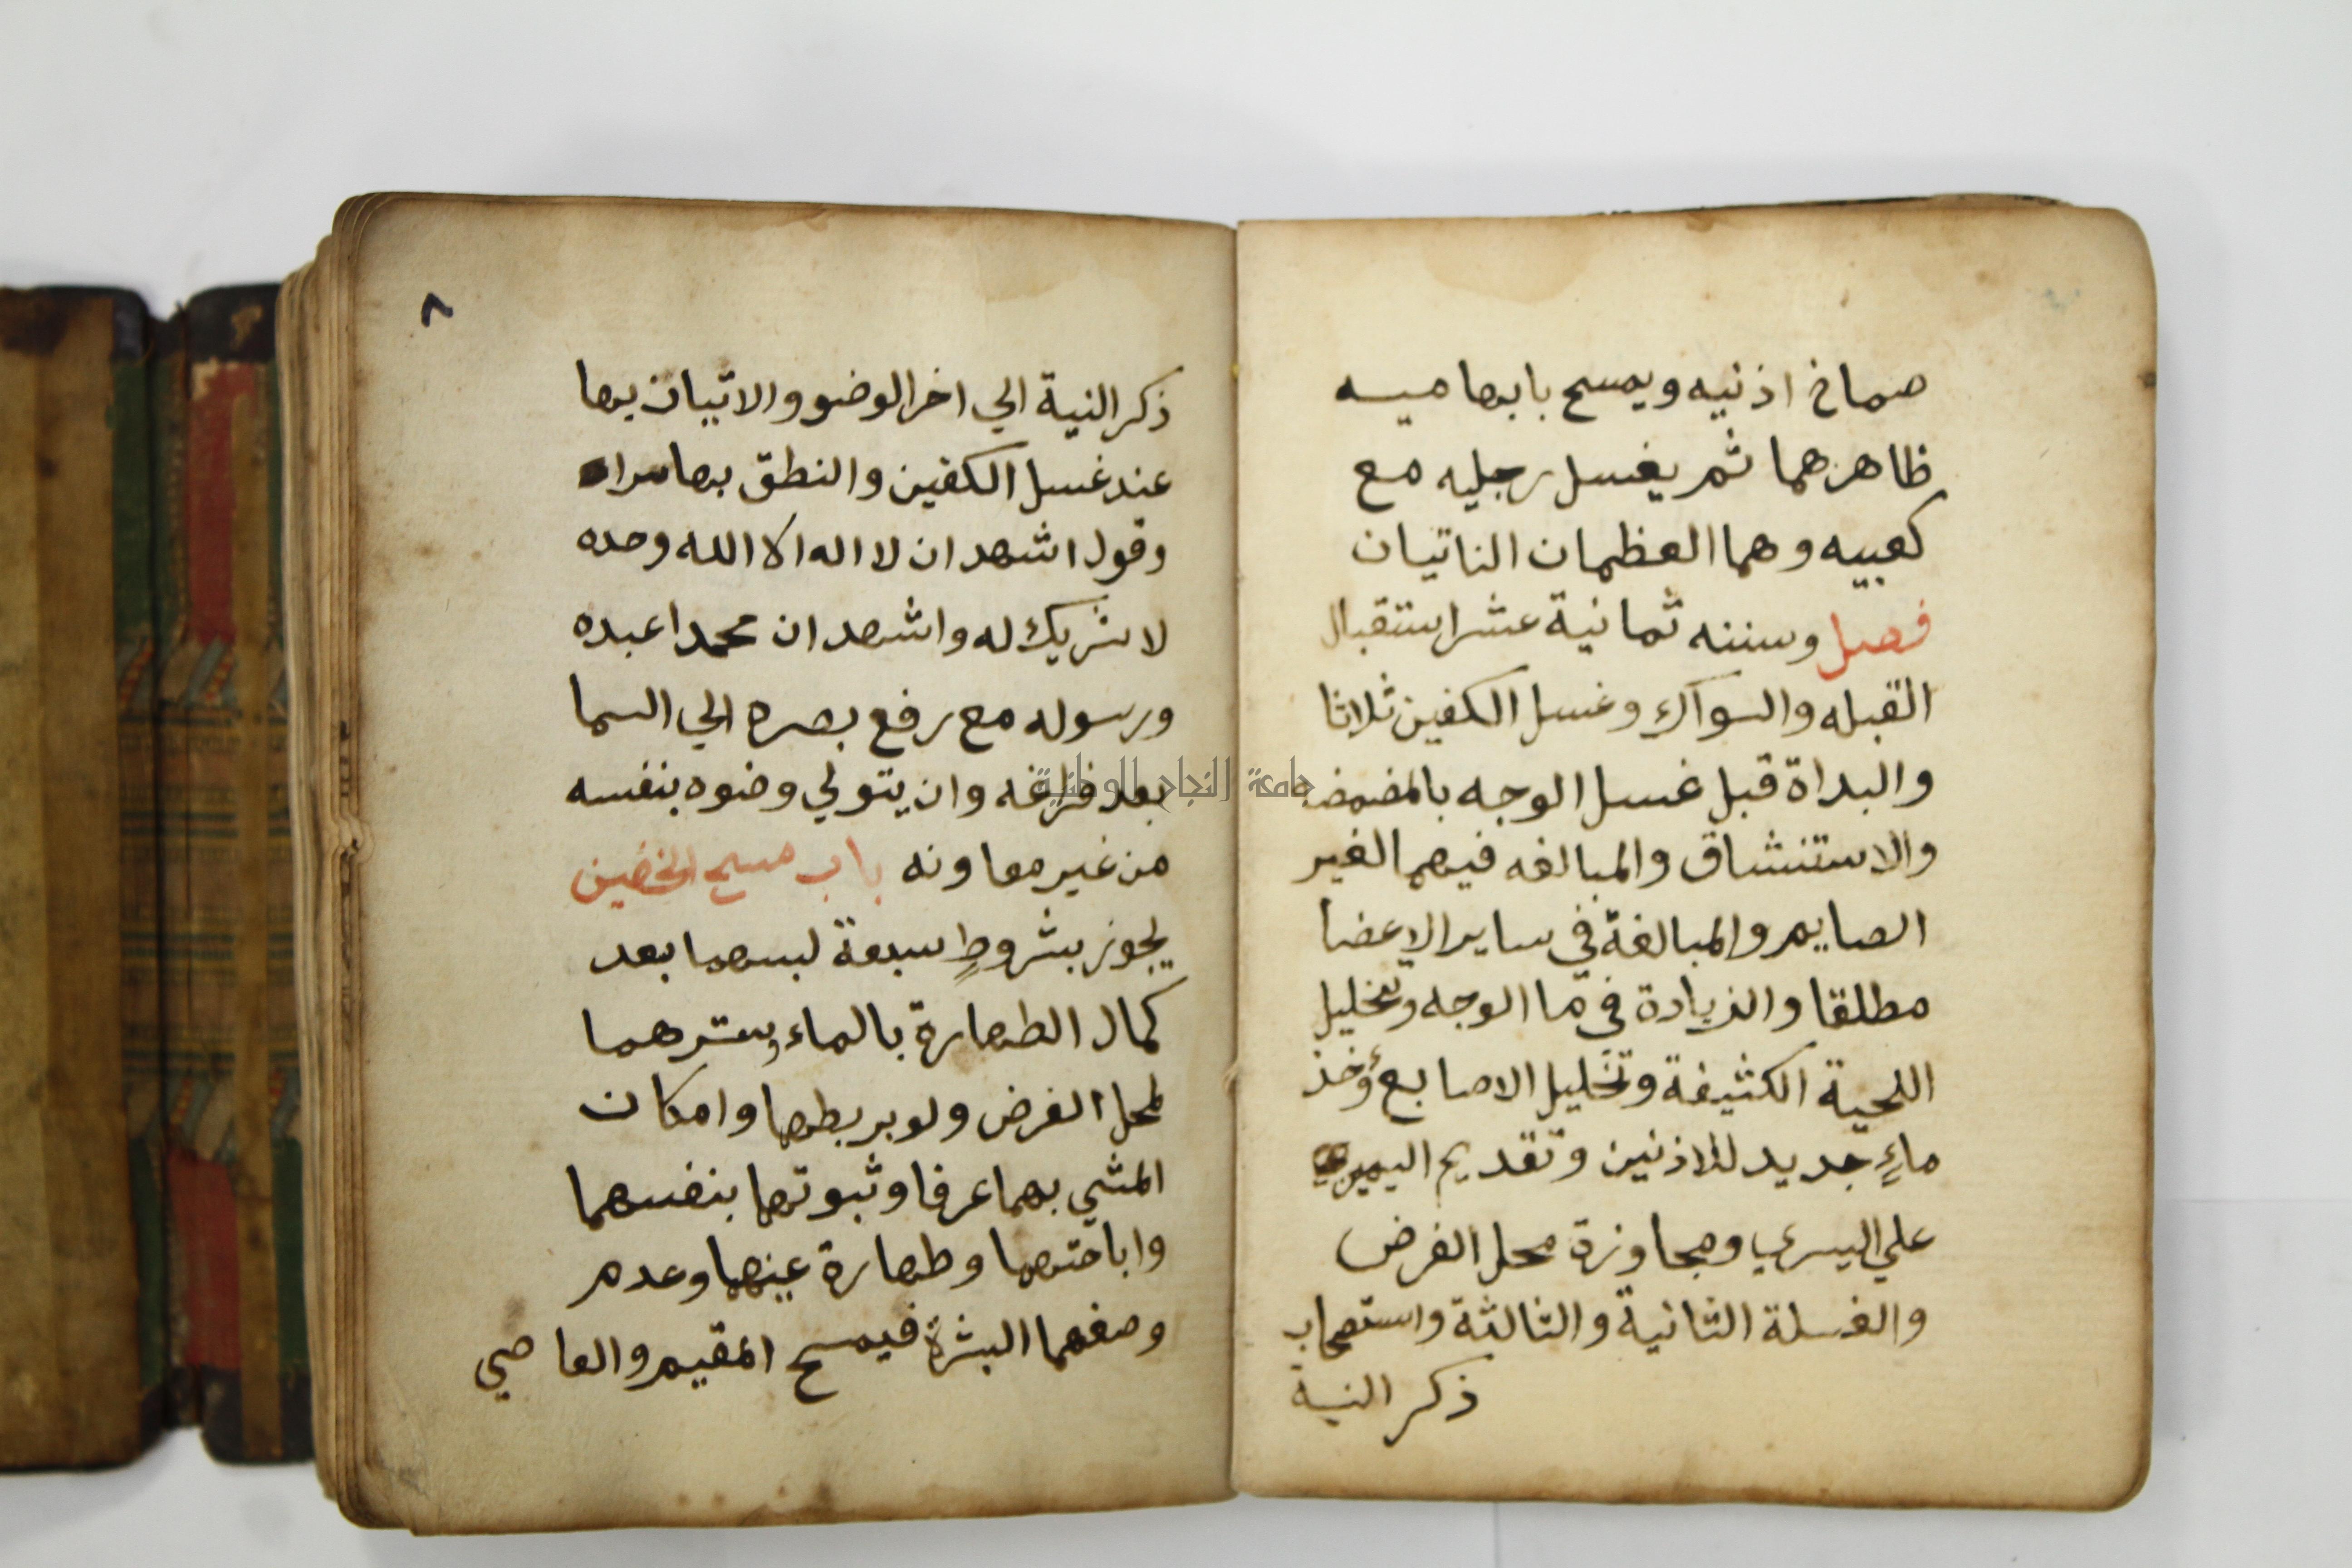 صماخ اذنيه ويمسح بابهاميه
ظاهرهما ثم يغسل رجليه مع
كعبيه وهما العظمان الناتيان
فصل وسننه ثمانية عشر استقبال
القبله والسواك وغسل الكفين ثلاثا
والبداة قبل غسل الوجه بالمضمضه
والاستنشاق والمبالغه فيهما لغير
الصايم والمبالغة في ساير الاعضا
مطلقا والزيادة في ما الوجه وتخليل
اللحية الكثيفة وتخليل الاصابع وأخذ
ماءٍ جديد للاذنين وتقديم اليمين
علي اليسري ومجاوزة محل الفرض
والغسلة الثانية والثالثة واستصحاب
ذكر النية
٨
ذكر النية الي اخر الوضوو والاتيان بها
عند غسل الكفين والنطق بها سرا
وقول اشهد ان لا اله الا الله وحده
لا شريك له واشهد ان محمدا عبده
ورسوله مع رفع بصره الي السما
بعد فراغه وان يتولي وضوه بنفسه
من غير معاونه باب مسح الخفين
يجوز بشروطٍ سبعة لبسهما بعد
كمال الطهارة بالماء وسترهما
لمحل الفرض ولو بربطهما وامكان
المشي بهما عرفا وثبوتهما بنفسهما
واباحتهما وطهارة عينهما وعدم
وصفهما البشرة فيمسح المقيم والعاصي
جامعة النجاح الوطنية